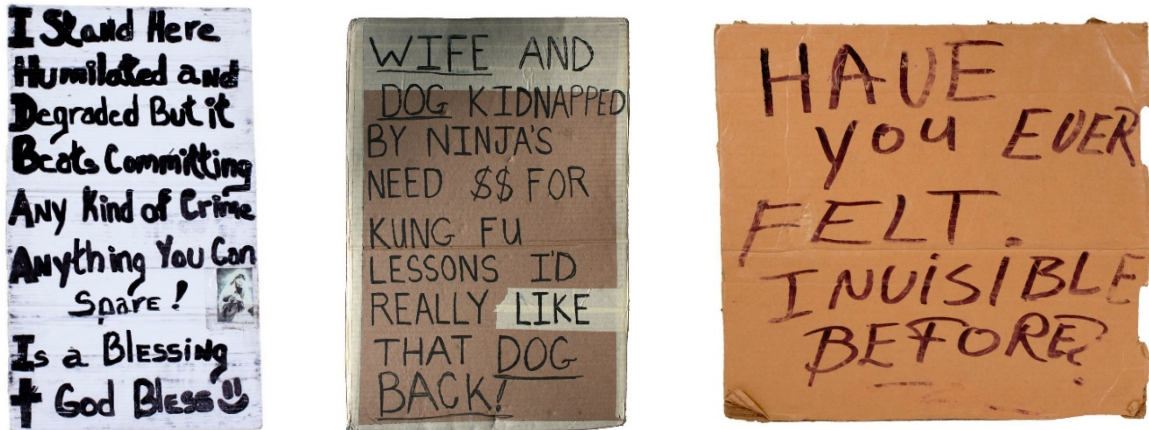 I Stand Here
Humilated and
Degraded But it
Beats Committing
ANY Kind of Crime
ANything You Can
Spare!
Is a BLESSiNg
✝ God BLESS
WIFE AND
DOG KIDNAPPED
BY NINJA'S
NEED $$ FOR
KUNG FU
LESSONS I'D
REALLY LIKE
THAT DOG
BACK!
HAVE
you EVER
FELT.
INViSiBLE
BEFORE?